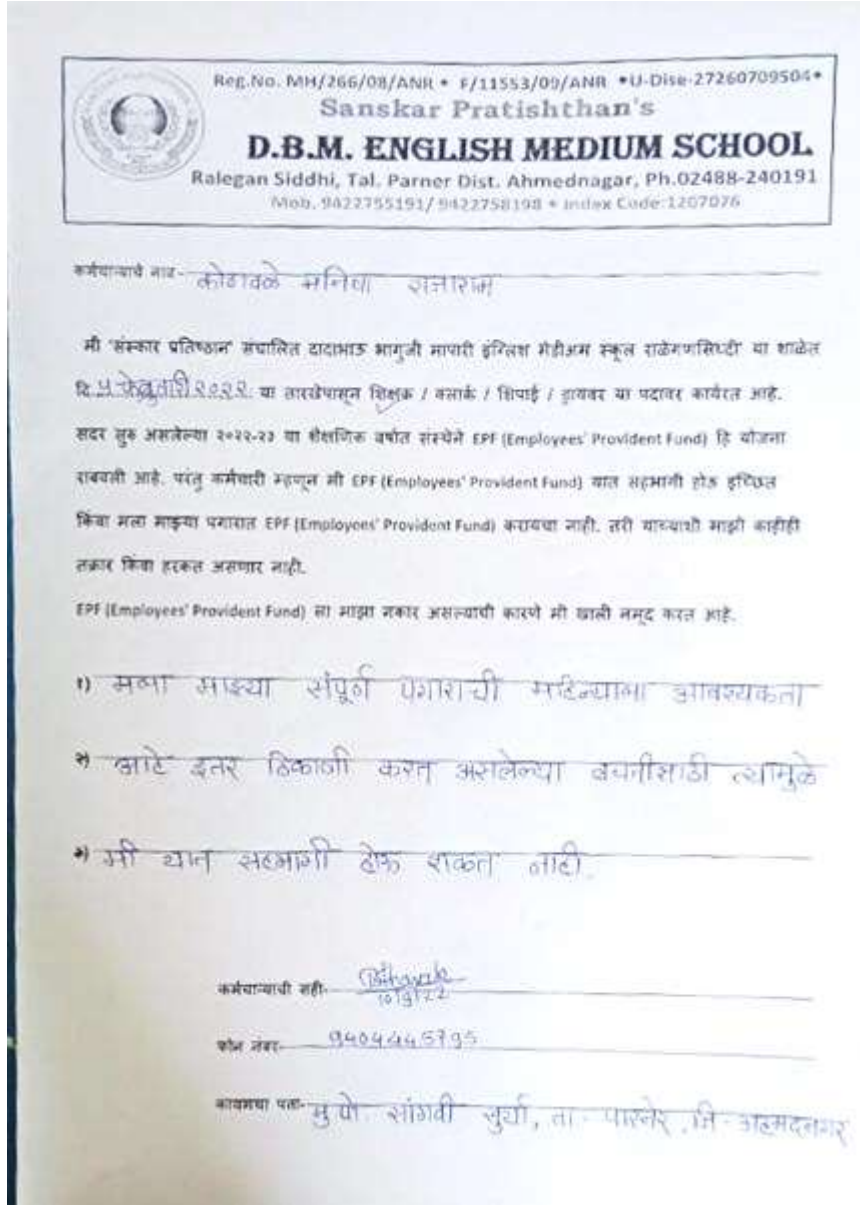 Reg.No. MH/266/08/ANR • F/11553/09/ANR •U-Dise-27260709504•
Sanskar Pratishthan's
D.B.M. ENGLISH MEDIUM SCHOOL
Ralegan Siddhi, Tal. Parner Dist. Ahmednagar, Ph.02488-240191
Mob. 9422755191/ 9422758198 • Index Code:1207076
कर्मचाऱ्याचे नाव- कोठावळे मनिषा राजाराम
मी 'संस्कार प्रतिष्ठान' संचालित दादाभाऊ भागुजी मापारी इंग्लिश मेडीअम स्कूल राळेगणसिध्दी या शाळेत
दि ५ फेब्रुवारी २०२२ या तारखेपासून शिक्षक / क्लार्क / शिपाई / ड्रायवर या पदावर कार्यरत आहे.
सदर सुरु असलेल्या २०२२-२३ या शैक्षणिक वर्षात संस्थेने EPF (Employees' Provident Fund) हि योजना
राबवली आहे. परंतु कर्मचारी म्हणून मी EPF (Employees' Provident Fund) यात सहभागी होऊ इच्छित
किंवा मला माझ्या पगारात EPF (Employees' Provident Fund) करायचा नाही. तरी याच्याशी माझी काहीही
तक्रार किंवा हरकत असणार नाही.
EPF (Employees' Provident Fund) ला माझा नकार असल्याची कारणे मी खाली नमूद करत आहे.
१) मला माझ्या संपूर्ण पगाराची महिन्याला आवश्यकता
२) आहे इतर ठिकाणी करत असलेल्या बचतीसाठी त्यामुळे
३) मी यात सहभागी होऊ शकत नाही.
कर्मचाऱ्याची सही-
10/9/22
फोन नंबर- 9404445795
कायमचा पत्ता- मु पो. सांगवी सुर्या, ता - पारनेर, जि - अहमदनगर